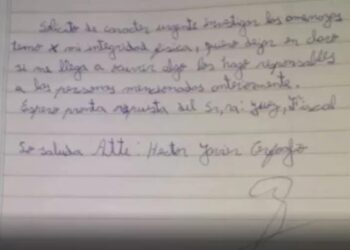 Solicito de caracter urgente investigar las amenazas
temo x mi integridad fisica, quiero dejar en claro
si me llega a ocurrir algo los hago responsables
a las personas mencionadas anteriormente.
Espero pronta repuesta del Sr, ra: juez, Fiscal
Se saluda Atte: Hector Javier